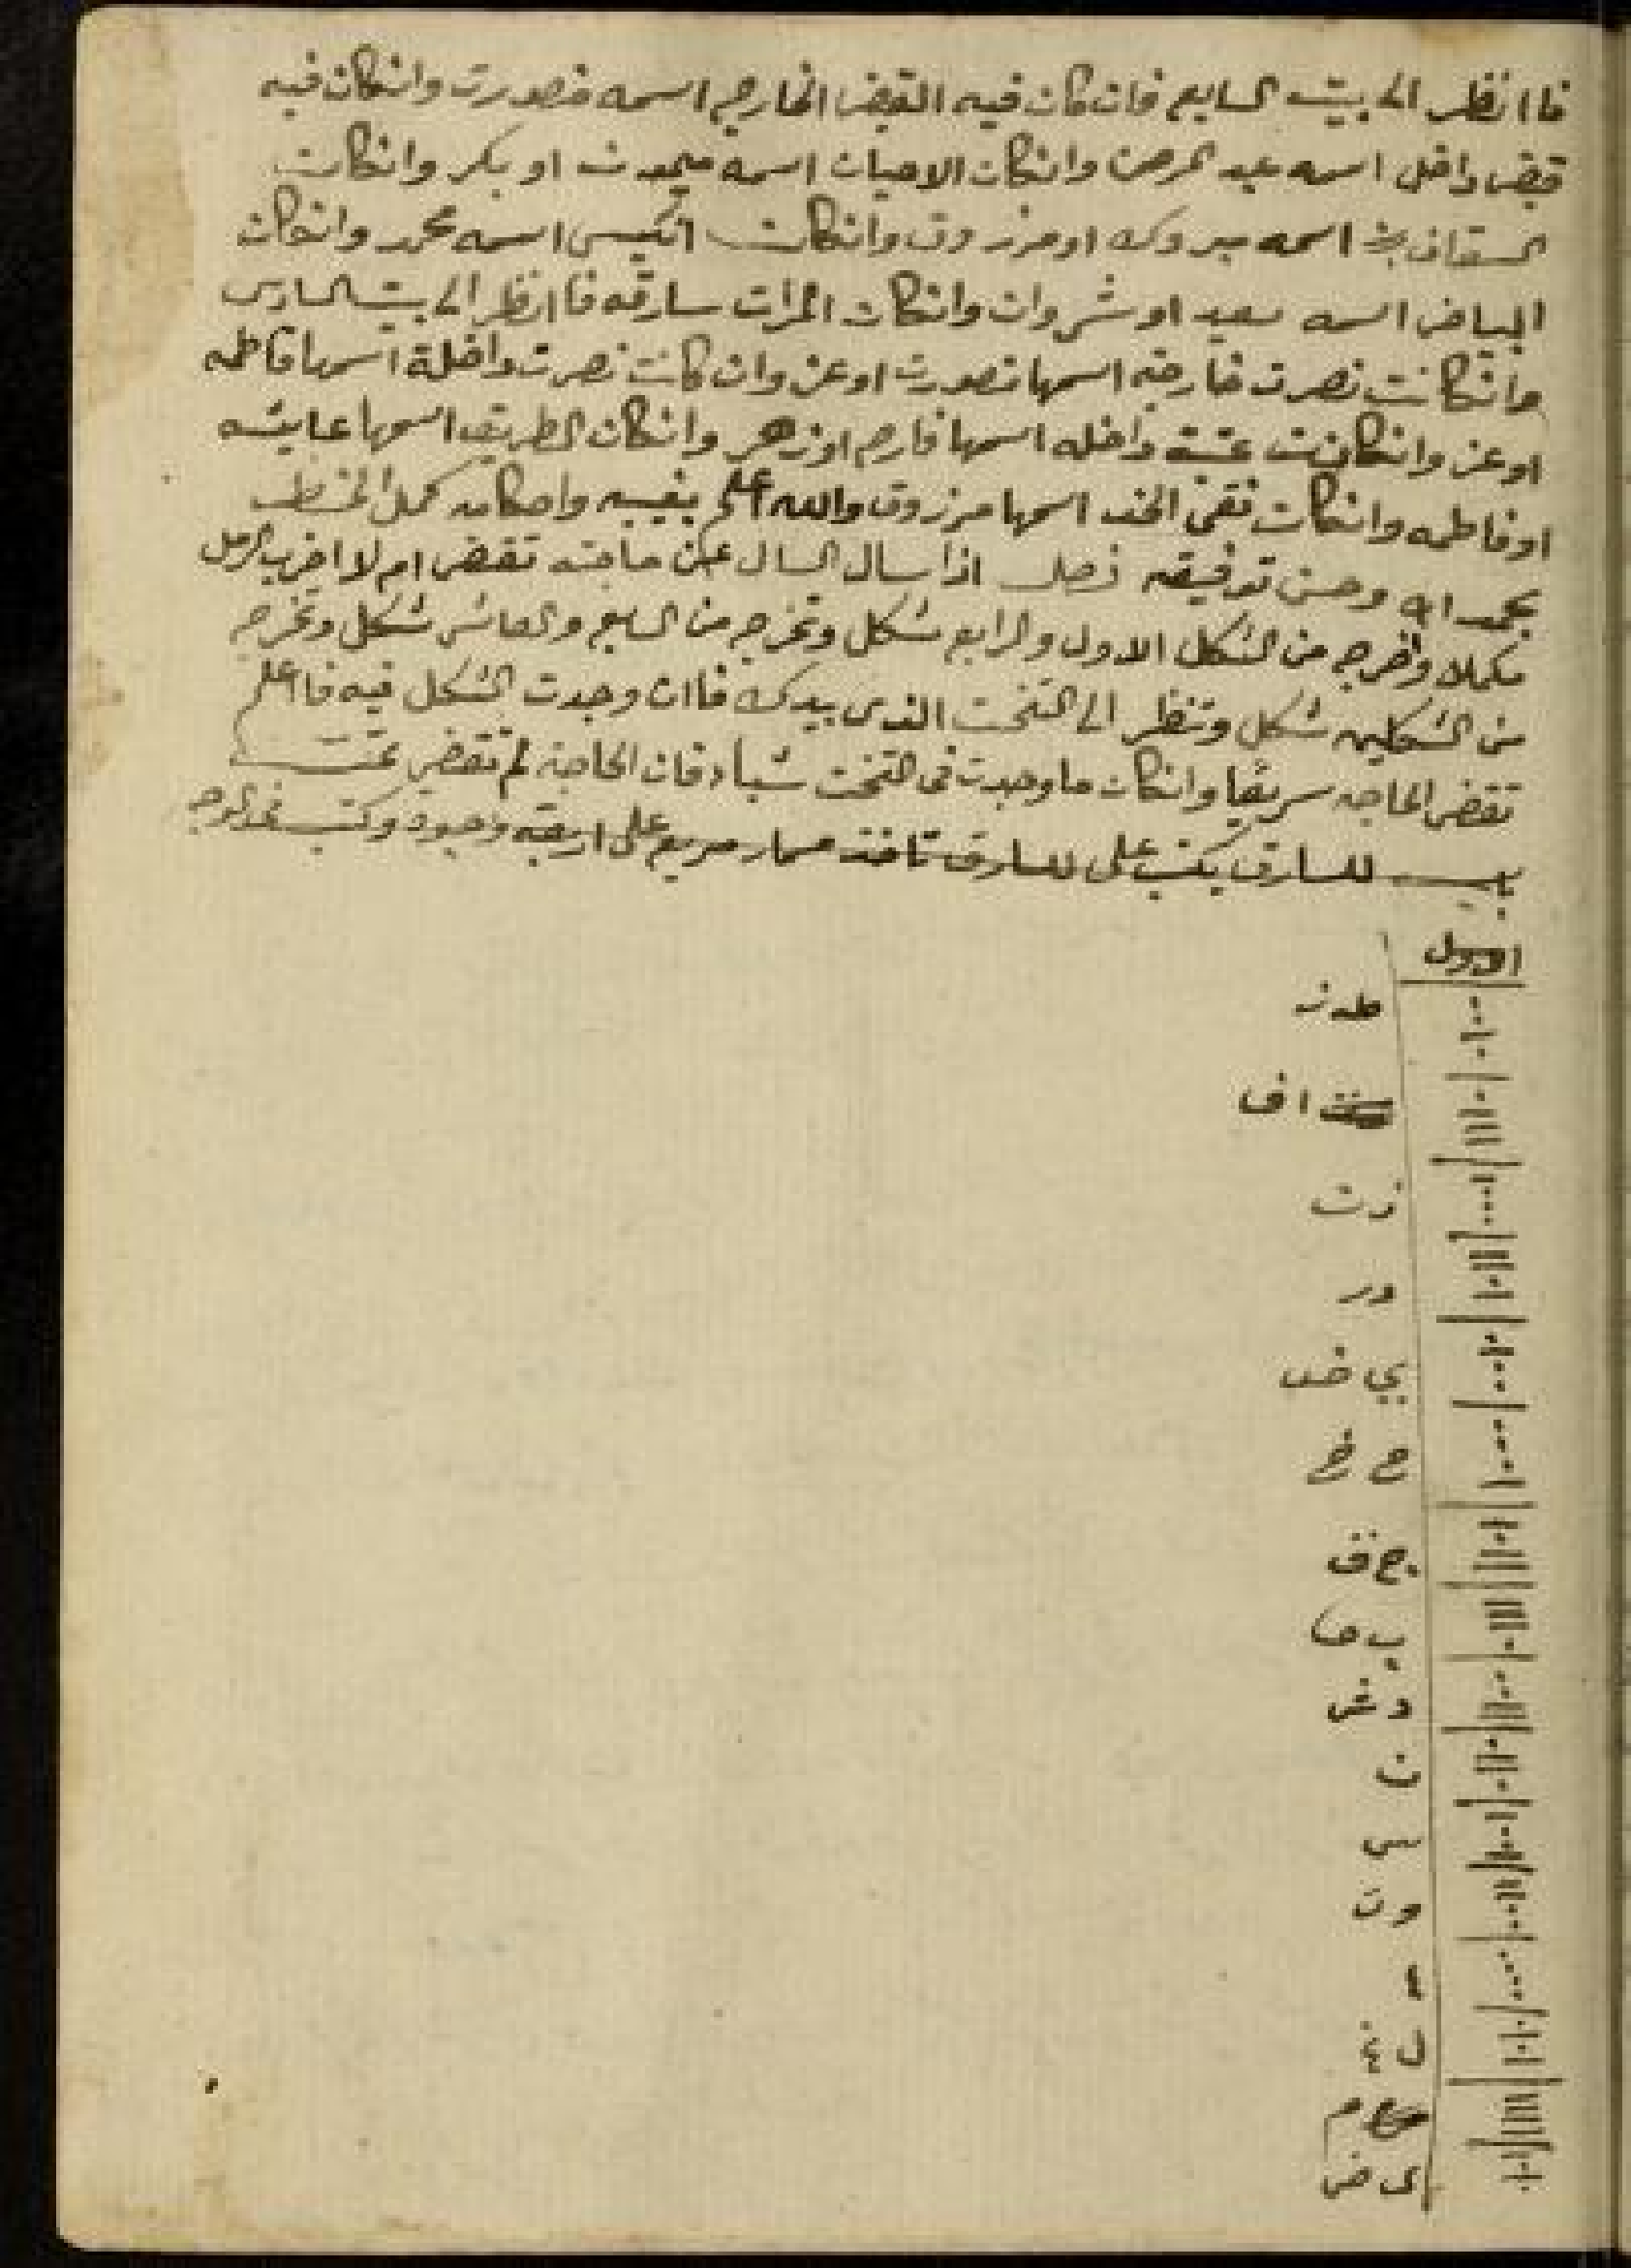 فا انظر الى بيت السابع فان كان فيه القبض الخارج اسمه منصورت وانكان فيه
قبض داخل اسمه عبد الرحمن وانكان الاحيان اسمه ميمون او بكر وانكانت
اسمه مبروك او مرزوق وانكانت انكيس اسمه محمد وانكان
البياض اسمه سعيد او شروان وانكان المرات سارقه فا انظر الى بيت السادس
وانكانت نصرت خارجه اسمها نصورت او عز وان كانت نصرت داخلة اسمها فاطمه
او عز وانكانت عتبة داخله اسمها فارح او زهر وانكان الطريق اسمها عايشه
او فاطمه وانكانت نقي الخد اسمها مرزوق والله اعلم بغيبه واحكامه كمل الخط
بحمد الله وحسن توفيقه فصل اذا سال السال عن حاجته تقض ام لا اضرب الرمل
مكملا واخرج من الشكل الاول والرابع شكل وتخرج من السابع والعاشر شكل وتخرج
من الشكلين شكل وتنظر الى التخت الذي بيدك فاان وجدت الشكل فيه فا اعلم
تقض الحاجه سريعا وانكان ما وجدت في التخت شيا فان الحاجة لم تقضي تمت
باب للسارق يكتب على للسارق تاخذ مسمار مربع على اربعه وجوه وكتب
الاول
اف
ذ ت
د ر
ي ض
ح خ
ج ف
ب ص
د غ
ن
س
و ت
ا
ل
م
ى ض